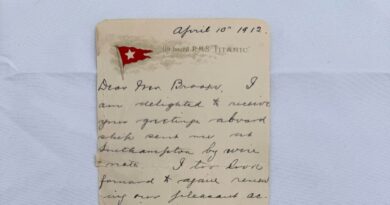 April 10th 1912.
On board R.M.S. "TITANIC"
Dear Mrs. Brooke. I
am delighted to receive
your greetings aboard
which sent me at
Southampton by
I too look
forward to again renew
ing our pleasant ac-